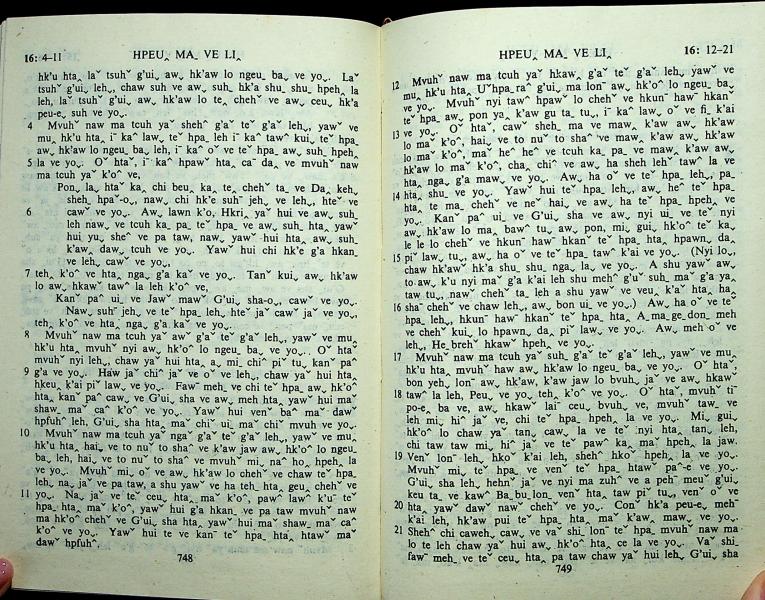 16: 4–11 HPEUꞈ MA_ VE LIꞈ
hk'u htaꞈ laˇ tsuhˇ g'ui˰ aw˰ hk'aw lo ngeu_ ba˰ ve yo˰. Laˇ
tsuhˇ g'ui˰ leh˰, chaw suh ve aw˰ suh_ hk'a shu_ shu_ hpehꞈ la
leh, laˇ tsuhˇ g'ui˰ aw˰ hk'aw lo teꞈ chehˇ ve aw˰ ceu˰ hk'a
peu-e˰ suh ve yo˰.
4 Mvuhˇ naw ma tcuh yaˇ shehˆ g'aˇ teˇ g'aˇ leh˰, yawˇ ve
muꞈ hk'u htaꞈ i¯ kaˆ lawˇ teˇ hpa_ leh i¯ kaˆ tawˆ kui˰ teˇ hpa_
aw˰ hk'aw lo ngeu_ ba˰ leh, i¯ kaˆ oˇ ve teˇ hpa_ aw˰ suh_ hpehꞈ
5 la ve yo˰. Oˇ htaˇ, i¯ kaˆ hpawˇ htaꞈ caˇ daꞈ ve mvuhˇ naw
ma tcuh yaˇ k'oˆ ve,
Pon˰ laꞈ htaˇ kaꞈ chi beuꞈ kaꞈ teꞈ chehˇ ta˰ ve Daꞈ keh˰
sheh_ hpaˇ-o˰, naw˰ chi hk'e suhˇ jeh˰ ve leh˰, hteˇ ve
6 cawˇ ve yo˰. Aw˰ lawn k'o, Hkriꞈ yaˇ hui ve aw˰ suh_
leh naw˰ ve tcuh ka_ pa_ teˇ hpa_ ve aw˰ suh_ htaꞈ yawˇ
hui yu˰ sheˆ ve pa taw, naw˰ yawˇ hui htaꞈ aw˰ suh_
k'awꞈ daw˰ tcuh ve yo˰. Yawˇ hui chi hk'e g'a hkan_
ve leh˰ cawˇ ve yo˰,
7 tehꞈ k'oˆ ve htaꞈ ngaꞈ g'a kaˇ ve yo˰. Tanˇ kui˰ aw˰ hk'aw
lo aw˰ hkawˇ tawˆ la leh k'oˆ ve,
Kanˇ paˆ ui˰ ve Jawˇ mawˇ G'ui˰ sha-o˰, cawˇ ve yo˰.
Naw˰ suhˇ jeh˰ ve teˇ hpa_ leh˰ hteˇ jaˇ cawˇ jaˇ ve yo˰,
tehꞈ k'oˆ ve htaꞈ ngaꞈ g'a kaˇ ve yo˰.
8 Mvuhˇ naw ma tcuh yaˇ awˇ g'aˇ teˇ g'aˇ leh˰, yawˇ ve muꞈ
hk'u htaꞈ mvuhˇ nyi aw˰ hk'oˆ lo ngeu_ ba˰ ve yo˰. Oˇ htaˇ
mvuhˇ nyi leh˰, chaw yaˇ hui htaꞈ a˰ mi_ chiˆ piˇ tuꞈ kanˇ paˆ
9 g'a ve yo˰. Haw jaˇ chiˆ jaˇ ve oˇ ve leh˰, chaw yaˇ hui htaꞈ
hkeuꞈ k'ai piˇ law˰ ve yo˰. Fawˇ meh_ ve chi teˇ hpa_ aw˰ hk'oˆ
htaꞈ kanˇ paˆ caw˰ ve G'ui˰ sha ve aw˰ meh htaꞈ yawˇ hui maˇ
shaw_ ma˰ caˆ k'oˆ ve yo˰. Yawˇ hui venˇ baˆ maˇ dawˇ
hpfuhˆ leh, G'ui˰ sha htaꞈ maˇ chiˇ ui˰ maˇ chiˇ mvuh ve yo˰.
10 Mvuhˇ naw ma tcuh yaˇ ngaˇ g'aˇ teˇ g'aˇ leh˰, yawˇ ve muꞈ
hk'u htaꞈ hai˰ ve to nuˇ to shaˆ ve k'aw jaw aw˰ hk'oˆ lo ngeu_
ba˰ leh, hai˰ ve to nuˇ to shaˆ ve mvuhˇ mi˰ naˆ hoꞈ hpehꞈ la
ve yo˰. Mvuhˇ mi˰ oˇ ve aw˰ hk'aw lo chehˇ ve chaw teˇ hpa_
leh˰ na˰ jaˇ ve pa taw, a shu yawˇ ve ha teh_ htaꞈ geuꞈ chehˇ ve
11 yo˰. Na˰ jaˇ ve teˇ ceu˰ htaꞈ maˇ k'oˆ, pawˆ lawˆ k'u¯ teˇ
hpa_ htaꞈ maˇ k'oˆ, yawˇ hui g'a hkan_ ve pa taw mvuhˇ naw
ma hk'oˆ chehˇ ve G'ui˰ sha htaꞈ yawˇ hui maˇ shaw_ maˇ caˆ
k'oˆ ve yo˰. Yawˇ hui te ve kan¯ teˇ hpa_ htaꞈ htawˇ maˇ
dawˇ hpfuhˆ.
748
HPEUꞈ MA_ VE LIꞈ 16: 12–21
12 Mvuhˇ naw ma tcuh yaˇ hkawꞈ g'aˇ teˇ g'aˇ leh˰, yawˇ ve
muꞈ hk'u htaꞈ Uˇhpa_raˆ g'ui˰ ma lon¯ aw˰ hk'oˆ lo ngeu_ ba˰
ve yo˰. Mvuhˇ nyi tawˆ hpawˇ lo chehˇ ve hkun¯ hawˇ hkan¯
teˇ hpa_ aw˰ pon_ yaꞈ k'aw gu ta_ tu˰, i¯ kaˆ lawˇ oˇ ve fiꞈ k'ai
13 ve yo˰. Oˇ htaˇ, cawˇ sheh_ ma ve mawˇ k'aw aw˰ hk'aw
lo maˇ k'oˆ, hai˰ ve to nuˇ to shaˆ ve maw˰ k'aw aw˰ hk'aw
lo maˇ k'oˆ, maˇ heˆ heˆ ve tcuh ka_ pa_ ve maw˰ k'aw aw˰
hk'aw lo maˇ k'oˆ, cha˰ chiˆ ve aw˰ ha sheh leh tawˆ la ve
htaꞈ ngaꞈ g'a mawˇ ve yo˰. Aw˰ ha oˇ ve teˇ hpa_ leh˰, pa_
14 htaꞈ shu_ ve yo˰. Yawˇ hui teˇ hpa_ leh˰, aw˰ heˆ teˇ hpa_
htaꞈ te ma˰ chehˇ ve neˇ hai˰ ve aw˰ ha teˇ hpa_ hpehꞈ ve
yo˰. Kanˇ paˆ ui˰ ve G'ui˰ sha ve aw˰ nyi ui˰ ve teˇ nyi
aw˰ hk'aw lo ma˰ bawˇ tu˰ aw˰ pon˰ mi˰ guiꞈ hk'oˆ teˇ kaꞈ
le le lo chehˇ ve hkun¯ hawˇ hkan¯ teˇ hpa_ htaꞈ hpawn˰ daꞈ
15 piˇ law˰ tu˰, aw˰ ha oˇ ve teˇ hpa_ tawˆ k'ai ve yo˰. (Nyi lo˰,
chaw hk'awˇ hk'a shu_ shu_ ngaꞈ la˰ ve yo˰. A shu yawˇ aw˰
to aw˰ k'u nyi maˇ g'a k'ai leh shu mehˆ g'uˇ suh_ maˇ g'a yaꞈ
taw tu˰, nawˇ chehˇ ta_ leh a shu yawˇ ve veuꞈ k'aˇ htaꞈ haꞈ
16 sha¯ chehˇ ve chaw leh˰, aw˰ bon ui˰ ve yo˰.) Aw˰ ha oˇ ve teˇ
hpa_ leh˰, hkun¯ hawˇ hkan¯ teˇ hpa_ htaꞈ A_ma_ge_don_ meh
ve chehˇ kui˰ lo hpawn˰ daꞈ piˇ law˰ ve yo˰. Aw˰ meh oˇ ve
leh˰, He_brehˇ hkawˇ hpehꞈ ve yo˰.
17 Mvuhˇ naw ma tcuh yaˇ suh_ g'aˇ teˇ g'aˇ leh˰, yawˇ ve muꞈ
hk'u htaꞈ mvuhˇ haw aw˰ hk'aw lo ngeu_ ba˰ ve yo˰. Oˇ htaˇ
bon yeh˰ lon¯ aw˰ hk'aw˰ k'aw jaw lo bvuhꞈ jaˇ ve aw˰ hkawˇ
18 tawˆ la leh, Peu˰ ve yo˰ tehꞈ k'oˆ ve yo˰. Oˇ htaˇ, mvuhˇ ti¯
po-e˰ ba ve, aw˰ hkawˇ laiˇ ceu˰ bvuhꞈ ve, mvuhˇ taw˰ ve
leh mi˰ hiˆ jaˇ ve, chi teˇ hpa_ hpehꞈ la ve yo˰. Mi˰ guiꞈ
hk'oˆ lo chaw yaˇ tan˰ caw˰ la ve teˇ nyi htaꞈ tan˰ leh,
chi taw taw mi˰ hiˆ jaˇ ve teˇ pawˆ kaꞈ maˇ hpehꞈ la jaw.
19 Venˇ lon¯ leh˰ hkoˇ k'ai leh, shehˆ hkoˆ hpehꞈ la ve yo˰.
Mvuhˇ mi˰ teˇ hpa_ ve venˇ teˇ hpa_ htawˇ paˆ-e ve yo˰.
G'ui˰ sha leh˰ hehn˰ jaˇ ve nyi ma zuhˆ ve a pehˉ meuˇ g'ui˰
keu ta_ ve kawˆ Ba_bu_lon_ venˇ htaꞈ taw piˇ tu˰, venˇ oˇ ve
20 htaꞈ yawˇ dawˇ nawˇ chehˇ ve yo˰. Conˆ hk'a peu-e˰ meh¯
k'ai leh, hk'aw pui teˇ hpa_ htaꞈ maˇ k'aw˰ maw˰ ve yo˰.
21 Shehˆ chi caweh˰ caw˰ ve vaˇ shi_ lon¯ teˇ hpa_ mvuhˇ naw ma
lo te leh chaw yaˇ hui aw˰ hk'oˆ htaꞈ ce la ve yo˰. Vaˇ shi_
fawˇ meh_ ve teˇ ceu˰ htaꞈ pa taw chaw yaˇ hui leh˰ G'ui˰ sha
749